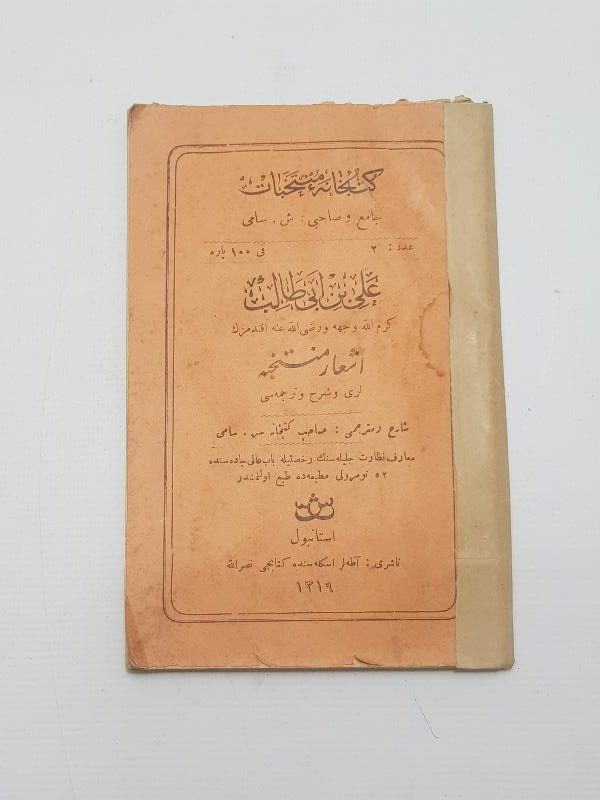 كتبخانهٔ منتخبات
جامع و صاحبی : ش . سامی
عدد : ٢ فی ١٠٠ پاره
علی بن ابی طالب
كرم الله وجهه ورضی الله عنه افندمزك
اشعار منتخبه
لری و شرح و ترجمه‌سی
شارح و مترجمی : صاحب كتبخانه ش . سامی
معارف نظارت جلیله‌سنك رخصتیله باب عالی جاده‌سنده
٥٢ نومرولی مطبعه‌ده طبع اولنمشدر
استانبول
ناشری : آطه‌لر اسكله‌سنده كتابجی نصرالله
١٣١٩